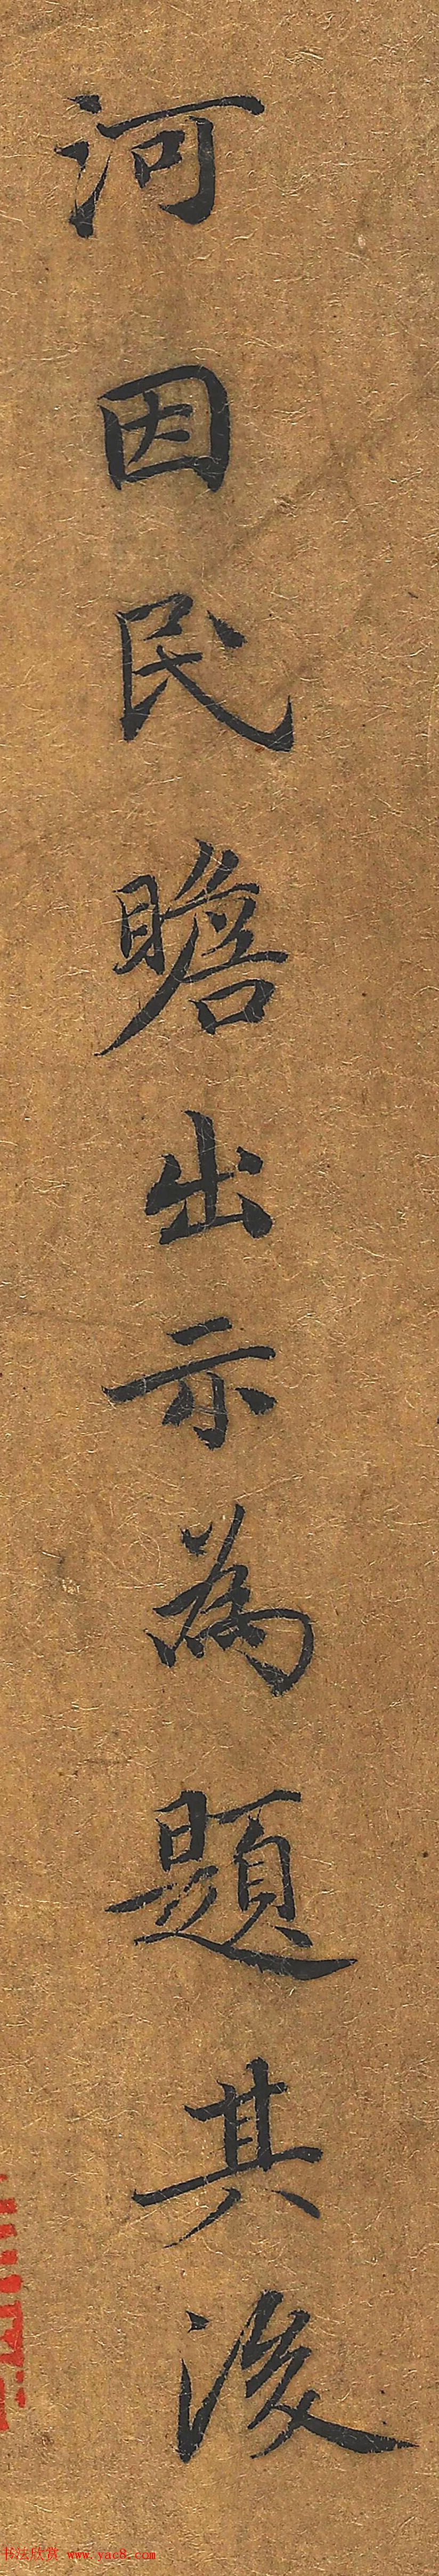 河因民瞻出示為題其後
书法欣赏 www.yac8.com